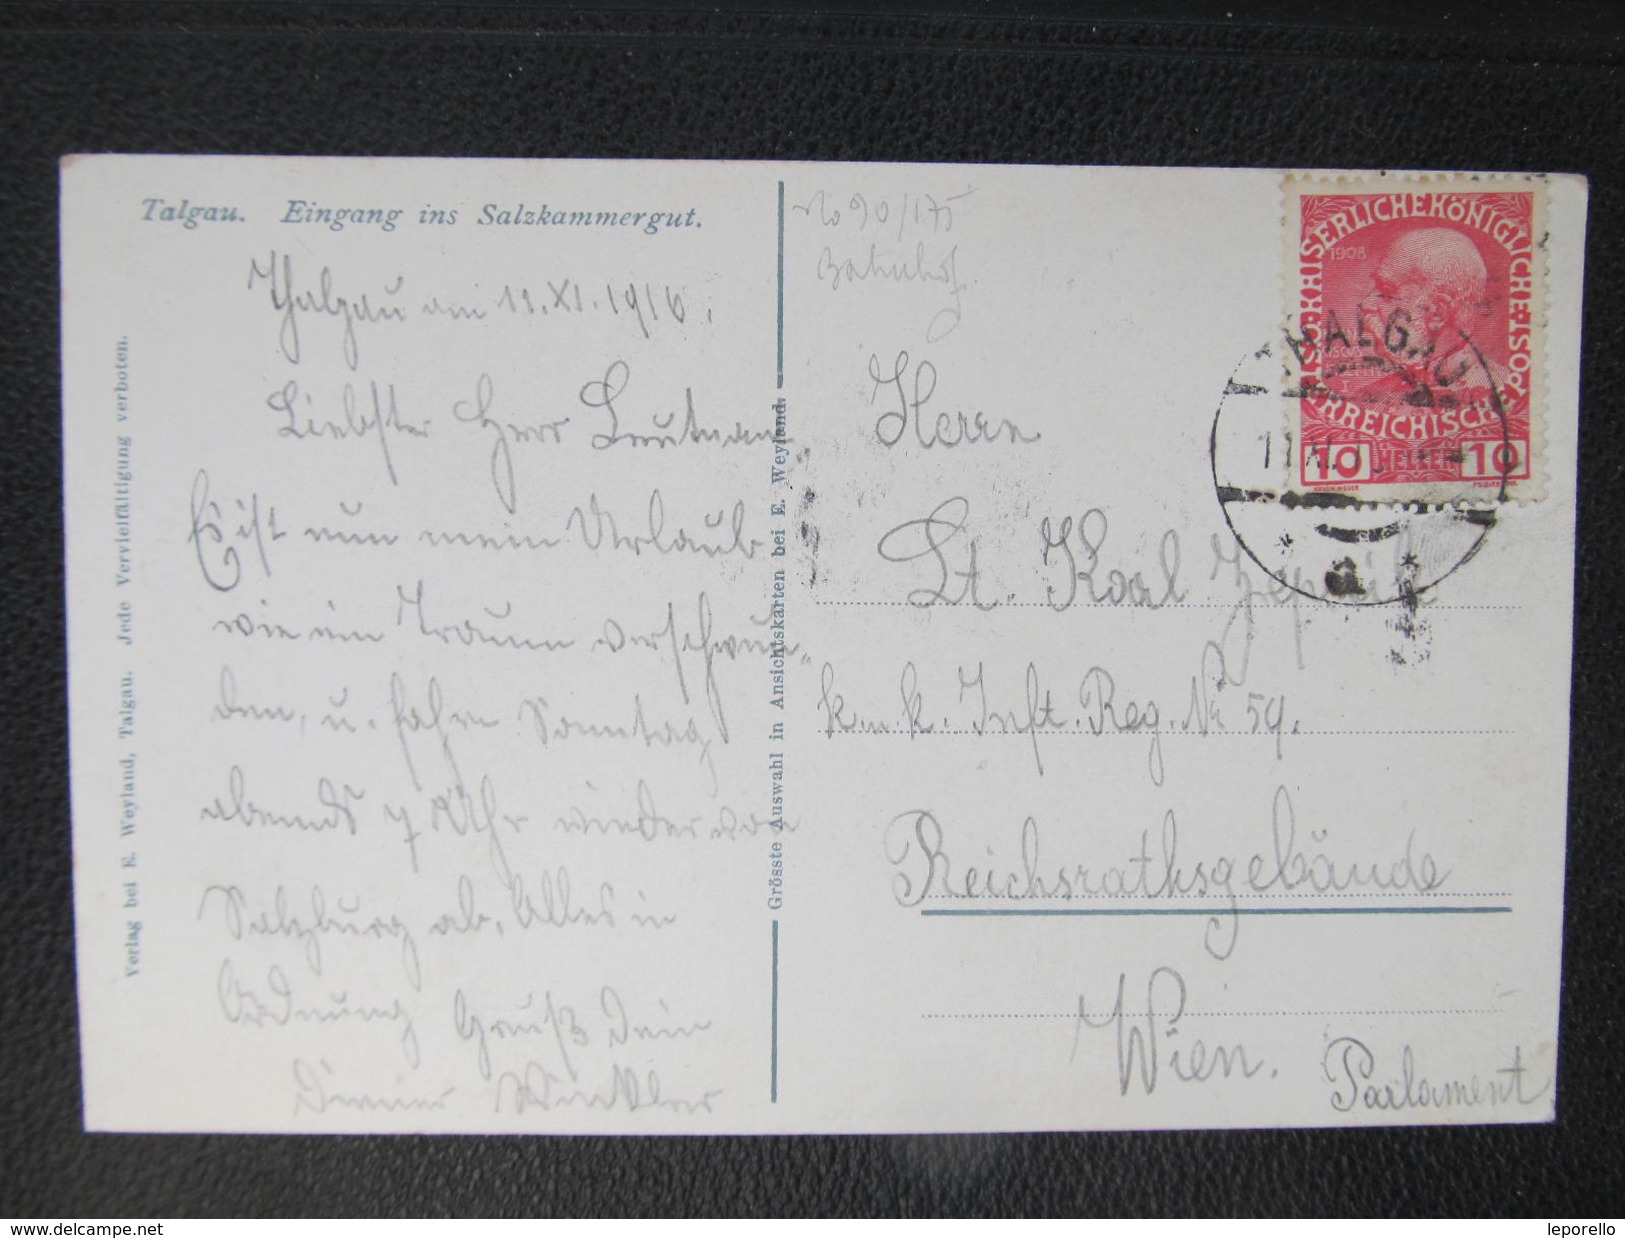 Talgau. Eingang ins Salzkammergut.
Thalgau am 11. XI. 1916.
Liebster Herr Leutnant
Es ist nun mein Urlaub
wie ein Traum verschwun„
den, u. fahre Sonntag
abends 7 Uhr wieder von
Salzburg ab. Alles in
Ordnung Gruß Dein
Diener Winkler
Verlag bei E. Weyland, Talgau. Jede Vervielfältigung verboten.
Grösste Auswahl in Ansichtskarten bei E. Weyland.
No 90/175
Bahnhof
KAISERLICHE KÖNIGLICHE
ÖSTERREICHISCHE POST
1908
10 HELLER 10
THALGAU
11 XI
* a *
Herrn
Lt. Karl
k. u. k. Inft. Reg. Nr 59.
Reichsrathsgebäude
Wien.
Parlament
www.delcampe.net
leporello